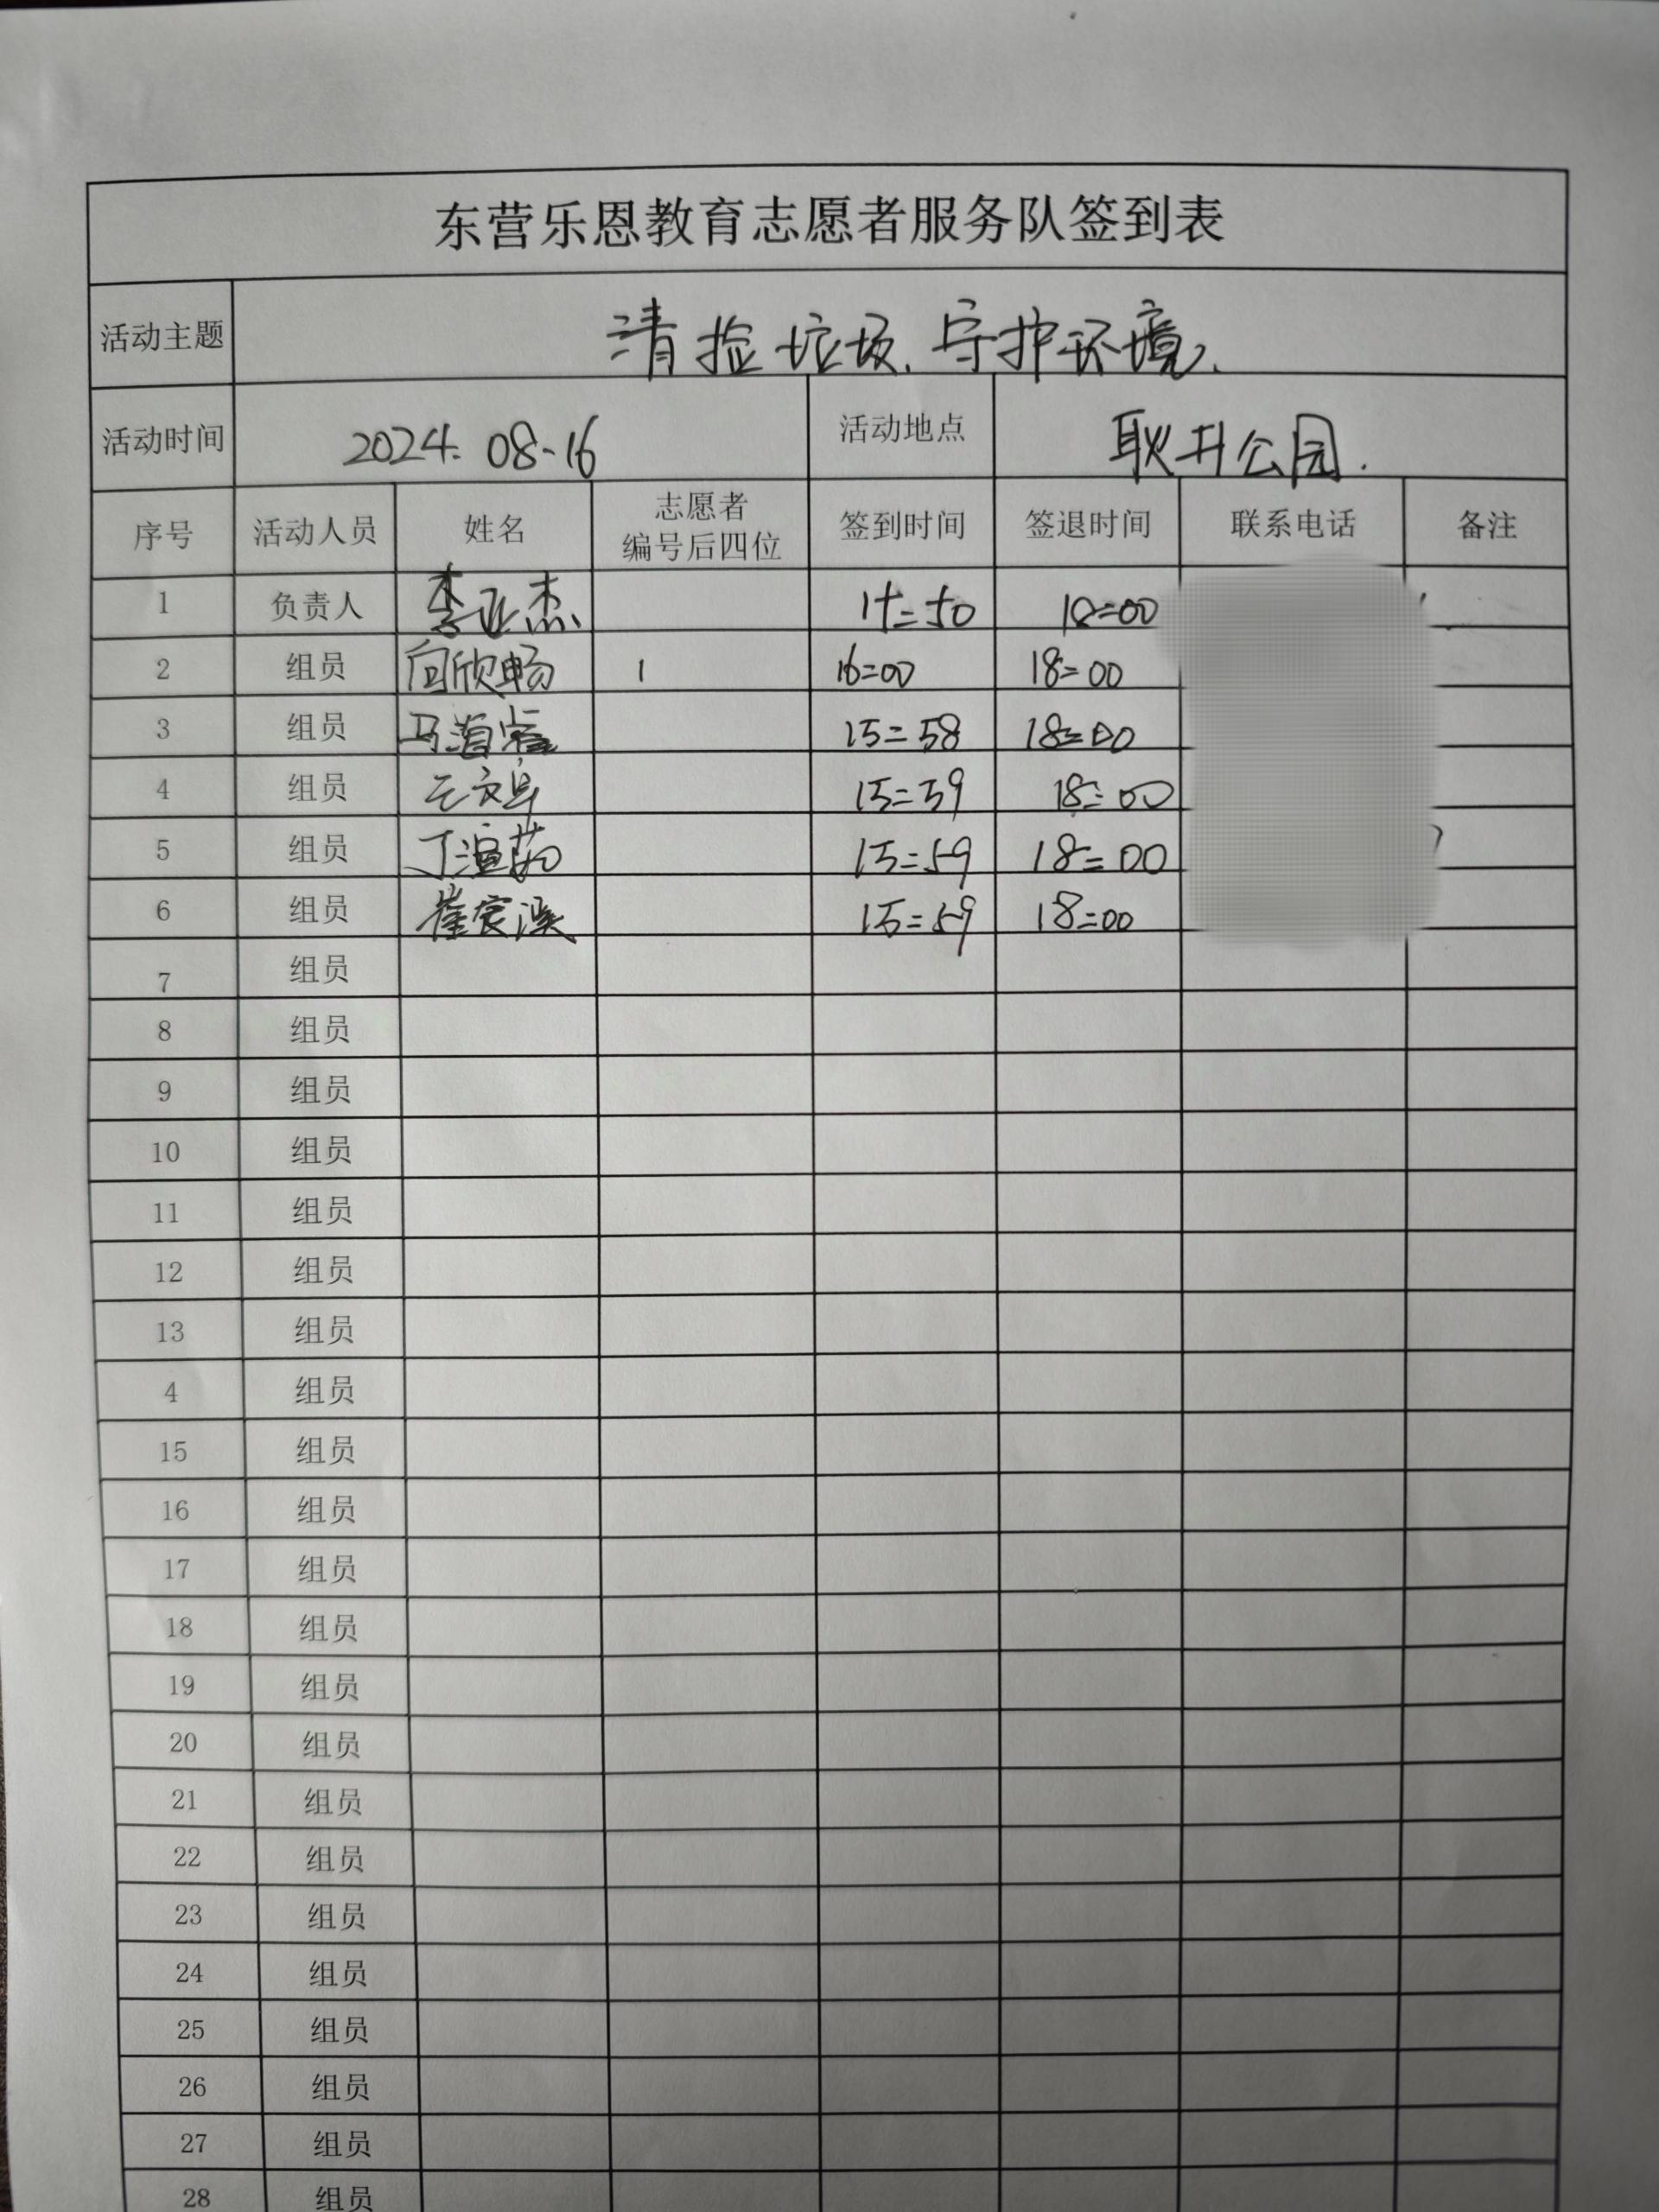 东营乐恩教育志愿者服务队签到表
活动主题 清捡垃圾、守护环境.
活动时间 2024.08-16 活动地点 耿井公园.
序号 活动人员 姓名 志愿者编号后四位 签到时间 签退时间 联系电话 备注
1 负责人 李亚杰 15=50 18=00
2 组员 向欣畅 1 16=00 18=00
3 组员 15=58 18=00
4 组员 15=59 18=00
5 组员 15=59 18=00
6 组员 15=59 18=00
7 组员
8 组员
9 组员
10 组员
11 组员
12 组员
13 组员
4 组员
15 组员
16 组员
17 组员
18 组员
19 组员
20 组员
21 组员
22 组员
23 组员
24 组员
25 组员
26 组员
27 组员
28 组员